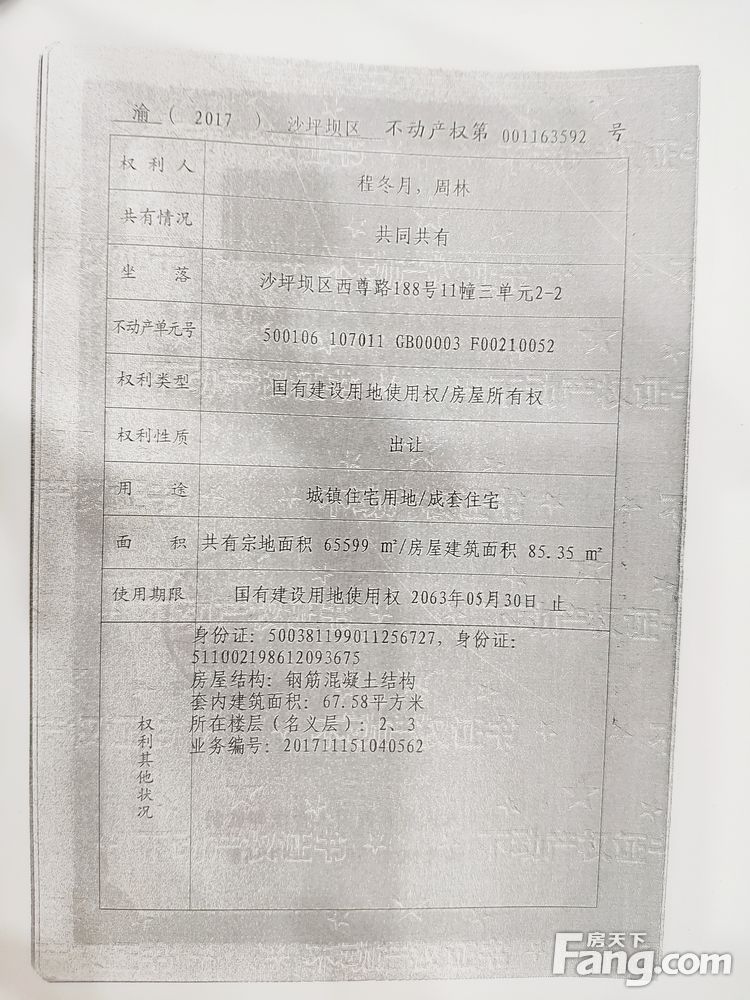 渝 ( 2017 ) 沙坪坝区 不动产权第 001163592 号
权利人 程冬月, 周林
共有情况 共同共有
坐落 沙坪坝区西尊路188号11幢三单元2-2
不动产单元号 500106 107011 GB00003 F00210052
权利类型 国有建设用地使用权/房屋所有权
权利性质 出让
用途 城镇住宅用地/成套住宅
面积 共有宗地面积 65599 ㎡/房屋建筑面积 85.35 ㎡
使用期限 国有建设用地使用权 2063年05月30日 止
权利其他状况
身份证: 500381199011256727, 身份证:
511002198612093675
房屋结构: 钢筋混凝土结构
套内建筑面积: 67.58平方米
所在楼层(名义层): 2、3
业务编号: 201711151040562
房天下
Fang.com